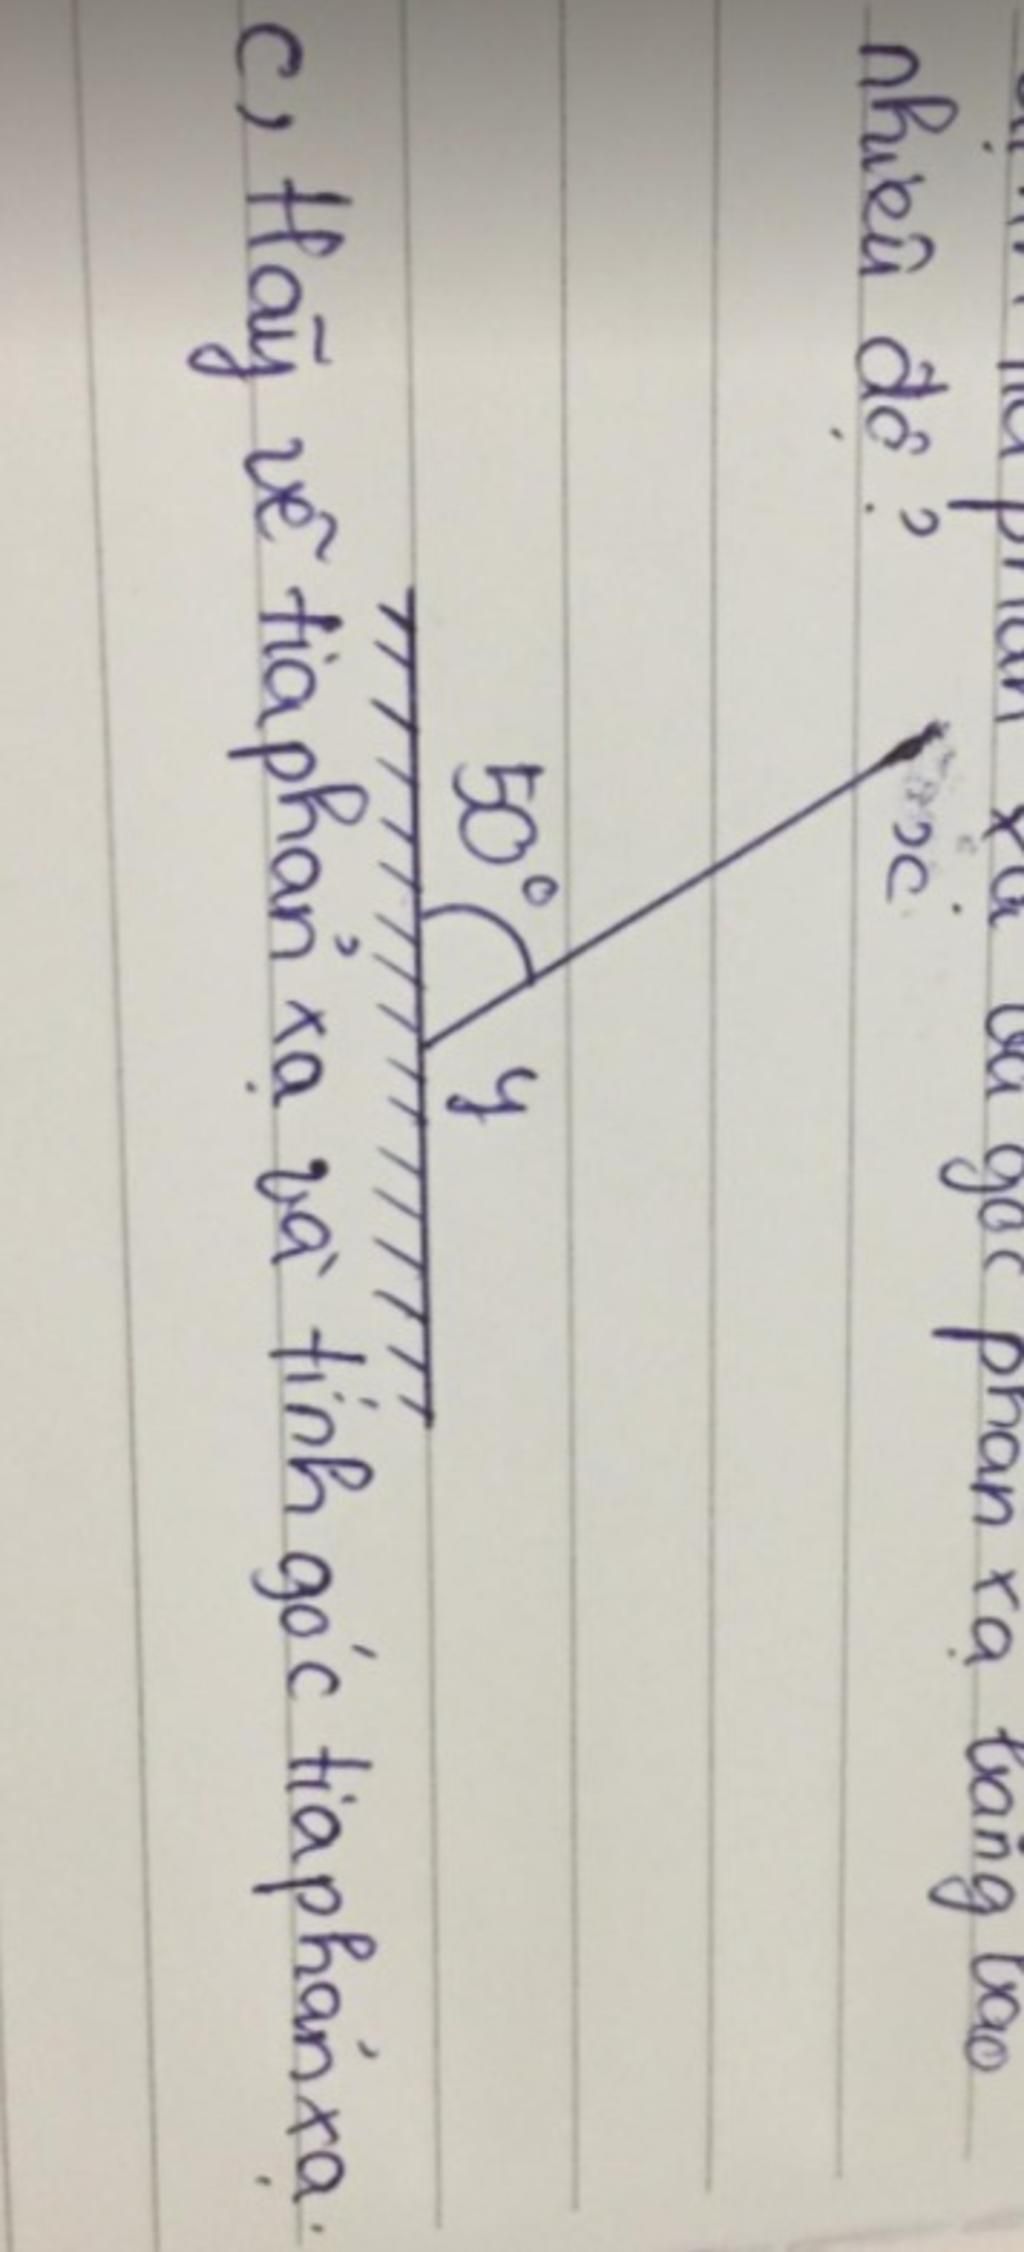 phản xạ và góc phản xạ bằng bao
nhiêu độ?
x
50°
y
c, Hãy vẽ tia phản xạ và tính góc tia phản xạ.